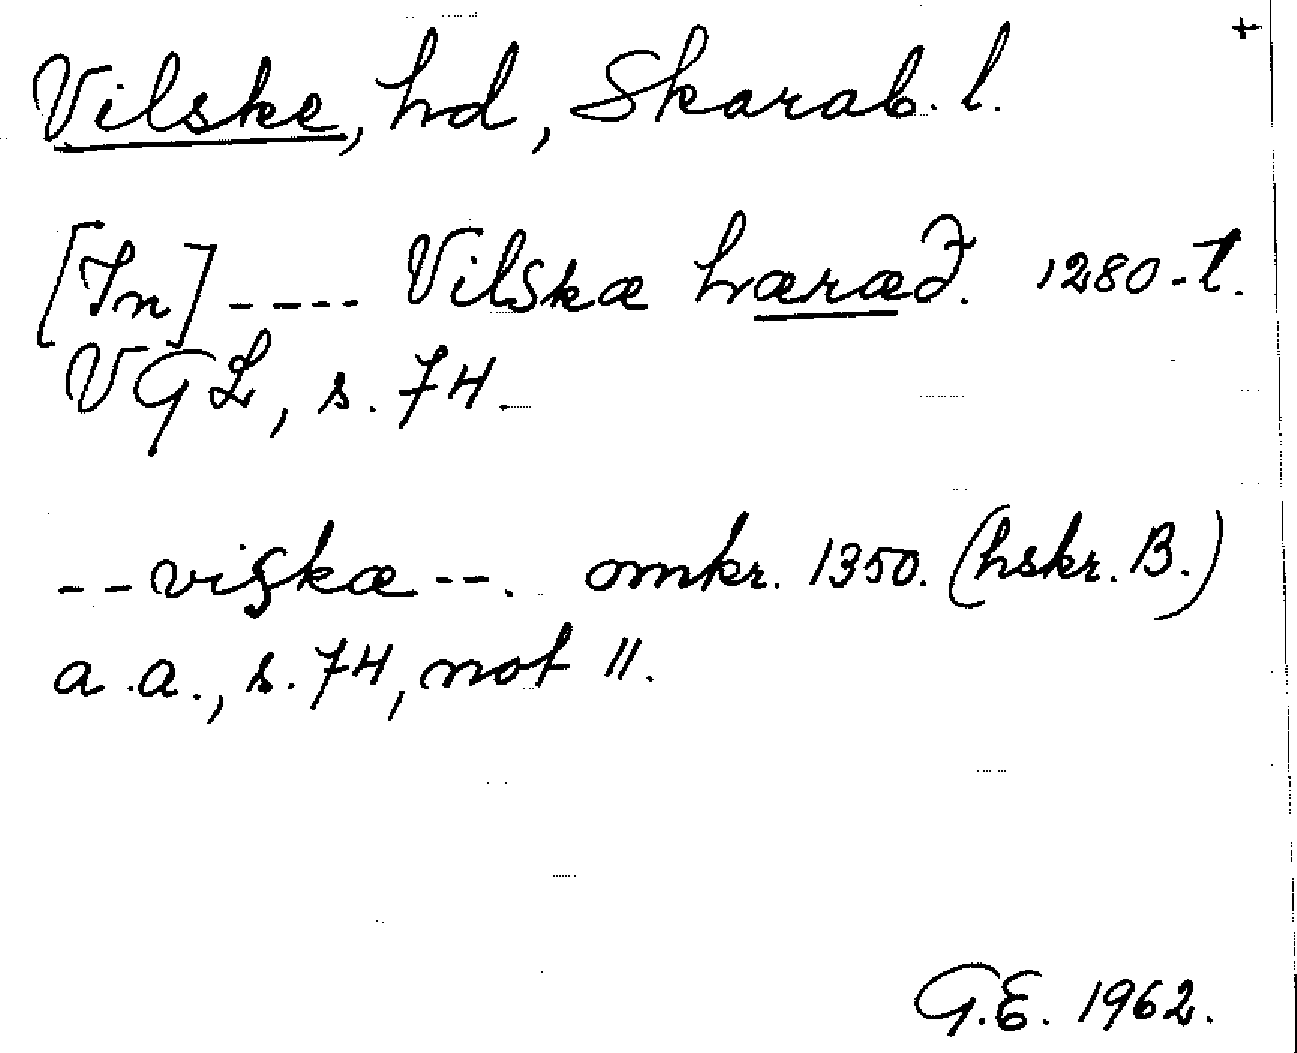 +
Vilske, hd, Skarab. l.
[In] ---- Vilskæ hæræð. 1280-t.
VGL, s. 74.
--viskæ--. omkr. 1350. (hskr. B.)
a.a., s. 74, not 11.
G.E. 1962.